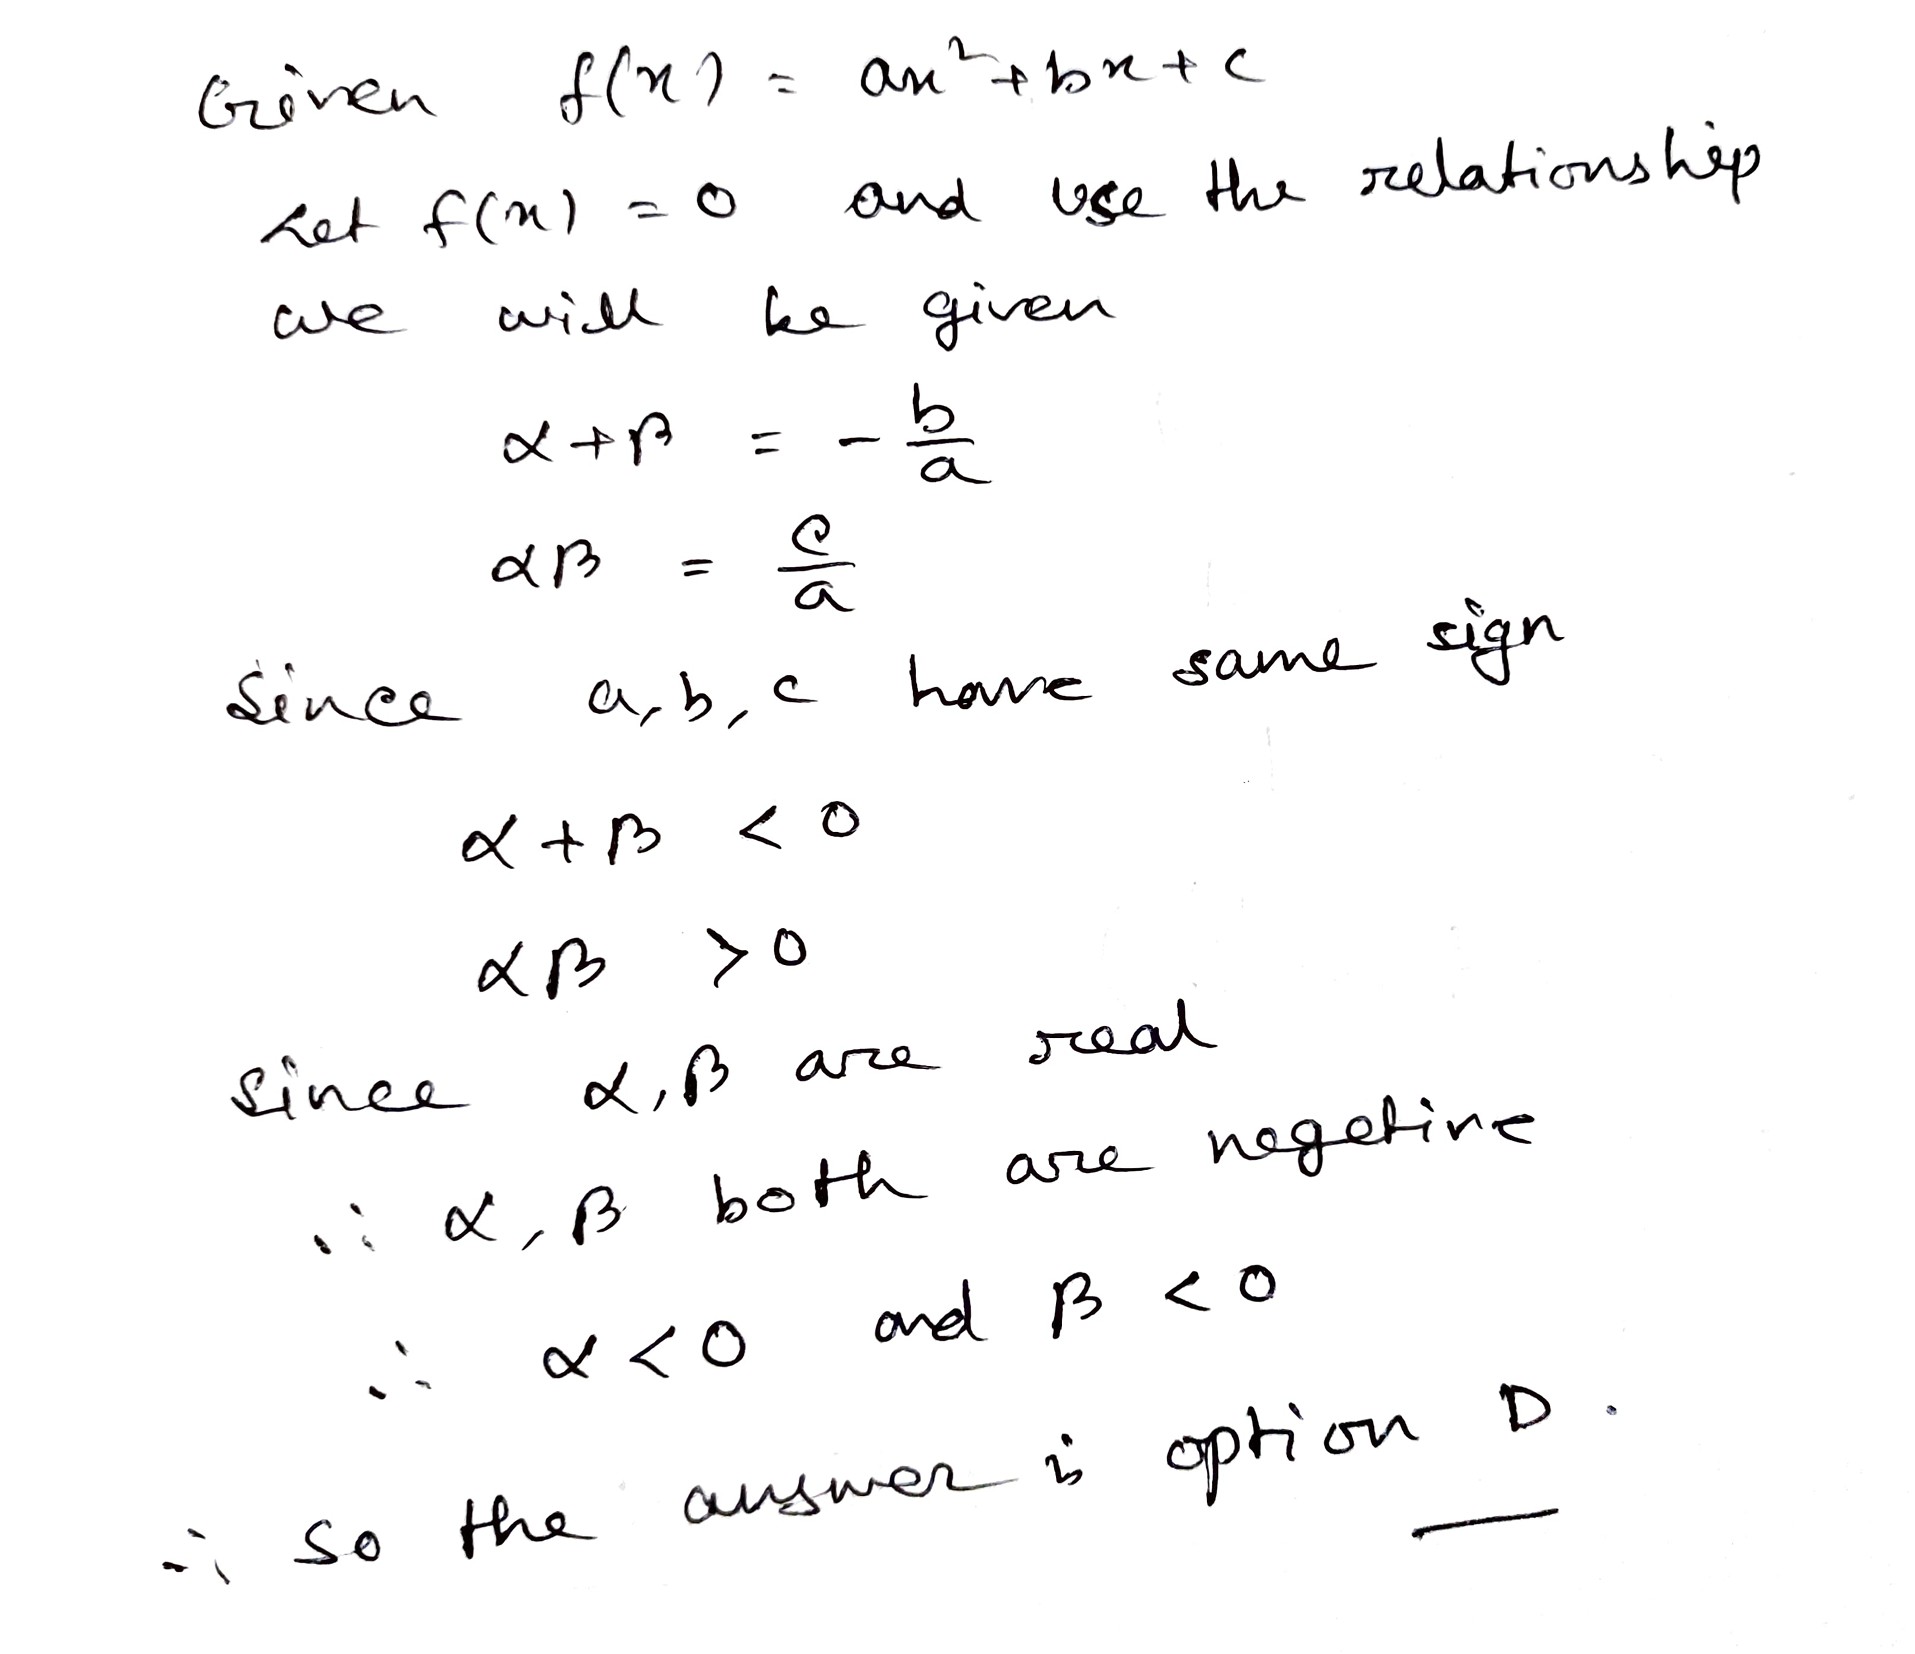 Given f(x) = ax²+bx+c
Let f(x) = 0 and use the relationship
we will be given
α+β = -b/a
αβ = c/a
Since a,b,c have same sign
α+β <0
αβ >0
Since α,β are real
∴ α,β both are negetive
∴ α<0 and β<0
∴ so the answer is option D.